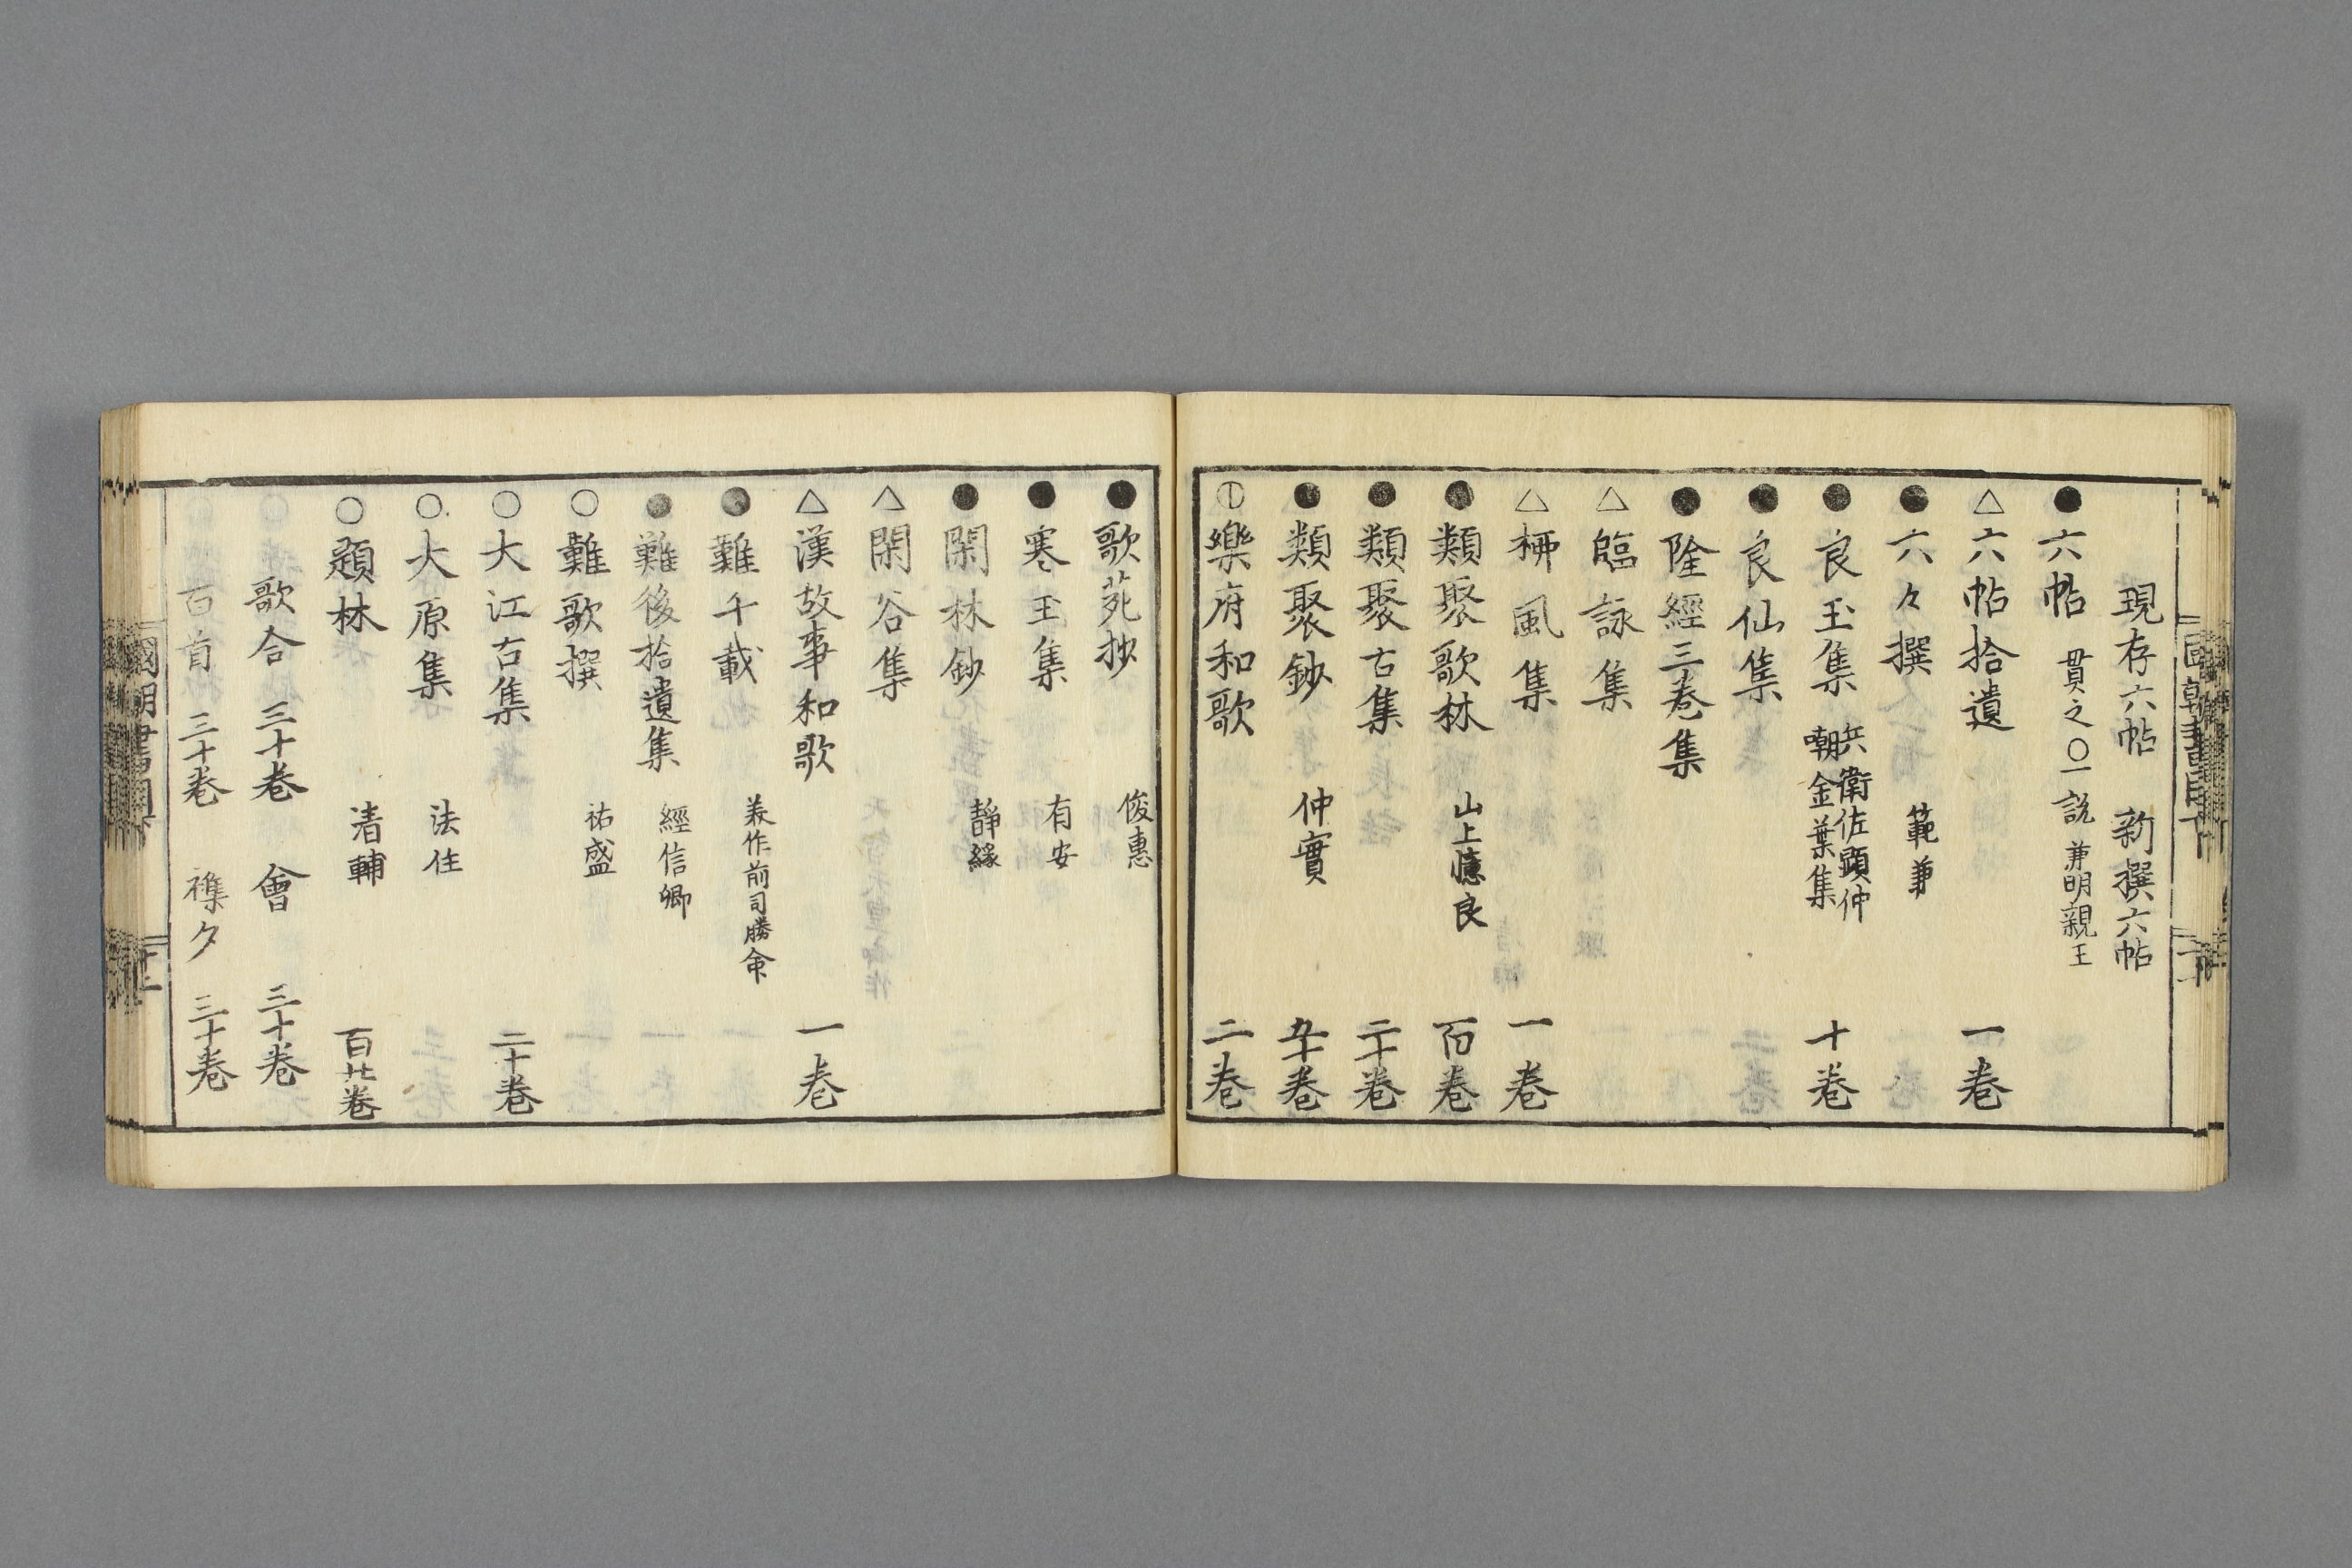 現存六帖 新撰六帖
●六帖 貫之〇一説 兼明親王
△六帖拾遺 一巻
●六々撰 範兼
●良玉集 兵衛佐顕仲 嘲金葉集 十巻
●良仙集
●隆經三巻集
△臨詠集
△柳風集 一巻
●類聚歌林 山上憶良 百巻
●類聚古集 二十巻
●類聚鈔 仲實 五十巻
樂府和歌 二巻
●歌苑抄 俊惠
●寒玉集 有安
●閑林鈔 靜縁
△閑谷集
△漢故事和歌 一巻
●難千載 美作前司勝命
●難後拾遺集 經信卿
○難歌撰 祐盛
○大江古集 二十巻
○大原集 法住
○題林 清輔 百廿巻
歌合 三十巻 會 三十巻
百首 三十巻 襍夕 三十巻